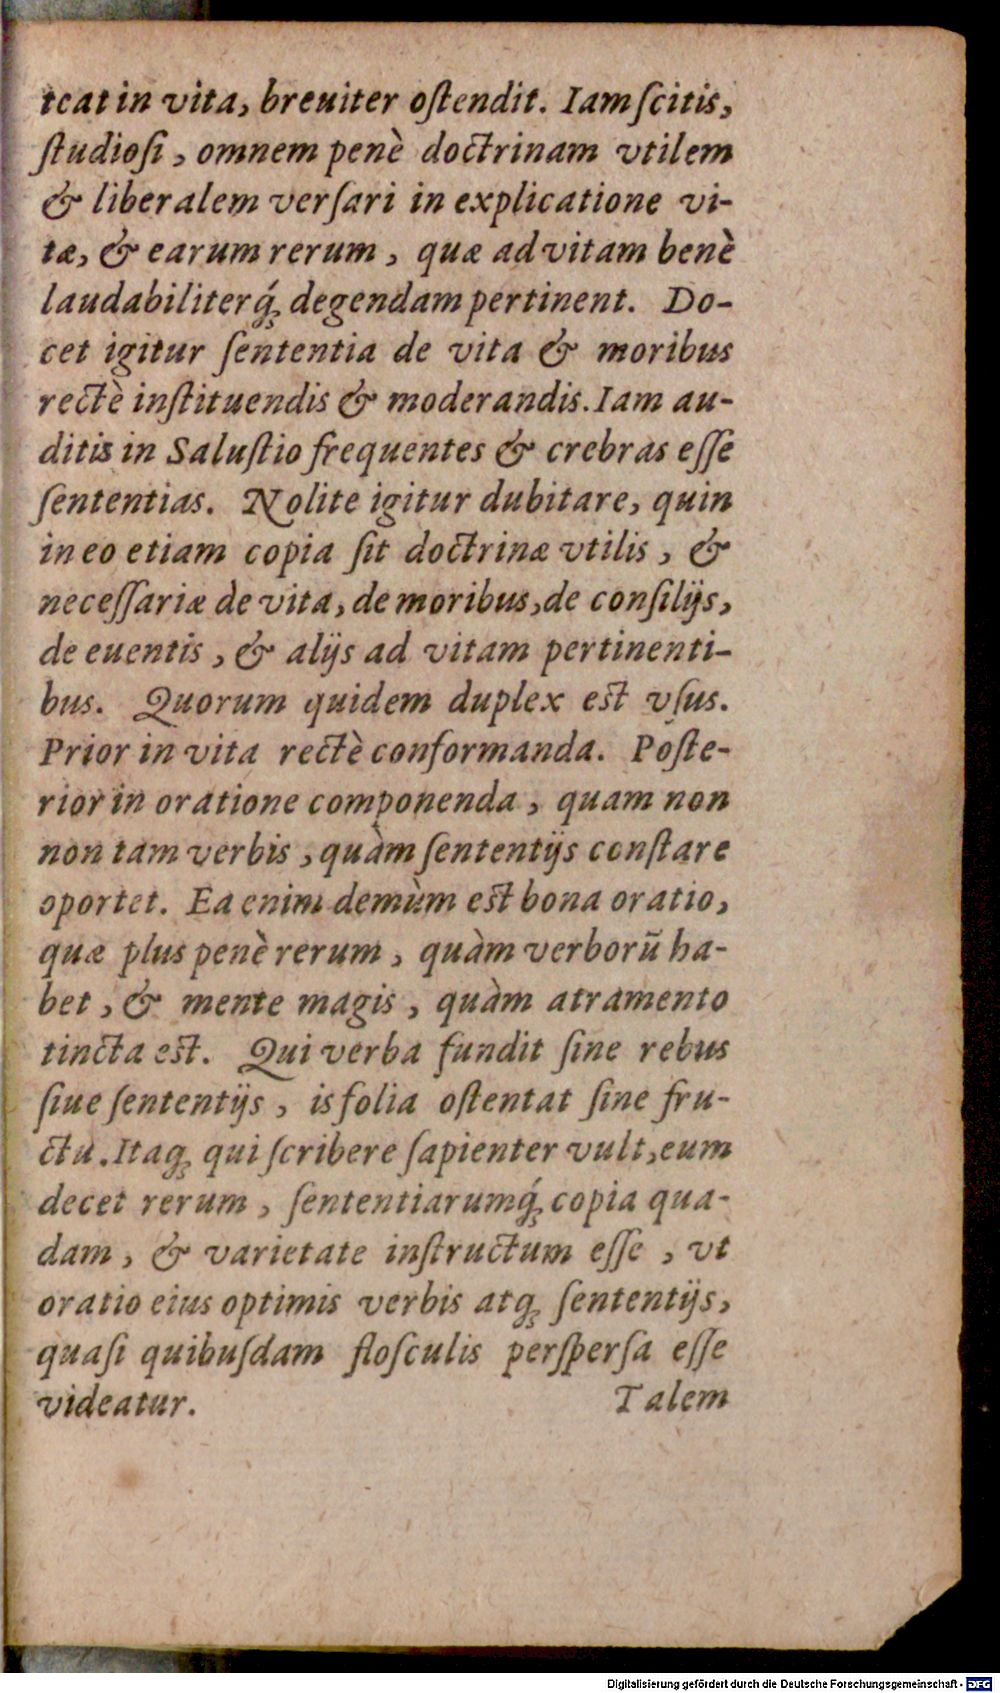 teat in vita, breuiter oſtendit. Iam ſcitis,
ſtudioſi, omnem penè doctrinam vtilem
& liberalem verſari in explicatione vi-
tæ, & earum rerum, quæ ad vitam benè
laudabiliterq́; degendam pertinent. Do-
cet igitur ſententia de vita & moribus
rectè inſtituendis & moderandis. Iam au-
ditis in Saluſtio frequentes & crebras eſſe
ſententias. Nolite igitur dubitare, quin
in eo etiam copia ſit doctrinæ vtilis, &
neceſſariæ de vita, de moribus, de conſilijs,
de euentis, & alijs ad vitam pertinenti-
bus. Quorum quidem duplex est vſus.
Prior in vita rectè conformanda. Poſte-
rior in oratione componenda, quam non
non tam verbis, quàm ſententijs conſtare
oportet. Ea enim demùm est bona oratio,
quæ plus penè rerum, quàm verborũ ha-
bet, & mente magis, quàm atramento
tincta est. Qui verba fundit ſine rebus
ſiue ſententijs, is folia oſtentat ſine fru-
ctu. Itaq; qui ſcribere ſapienter vult, eum
decet rerum, ſententiarumq́; copia qua-
dam, & varietate inſtructum eſſe, vt
oratio eius optimis verbis atq; ſententijs,
quaſi quibuſdam floſculis perſperſa eſſe
videatur. Talem
Digitalisierung gefördert durch die Deutsche Forschungsgemeinschaft - DFG